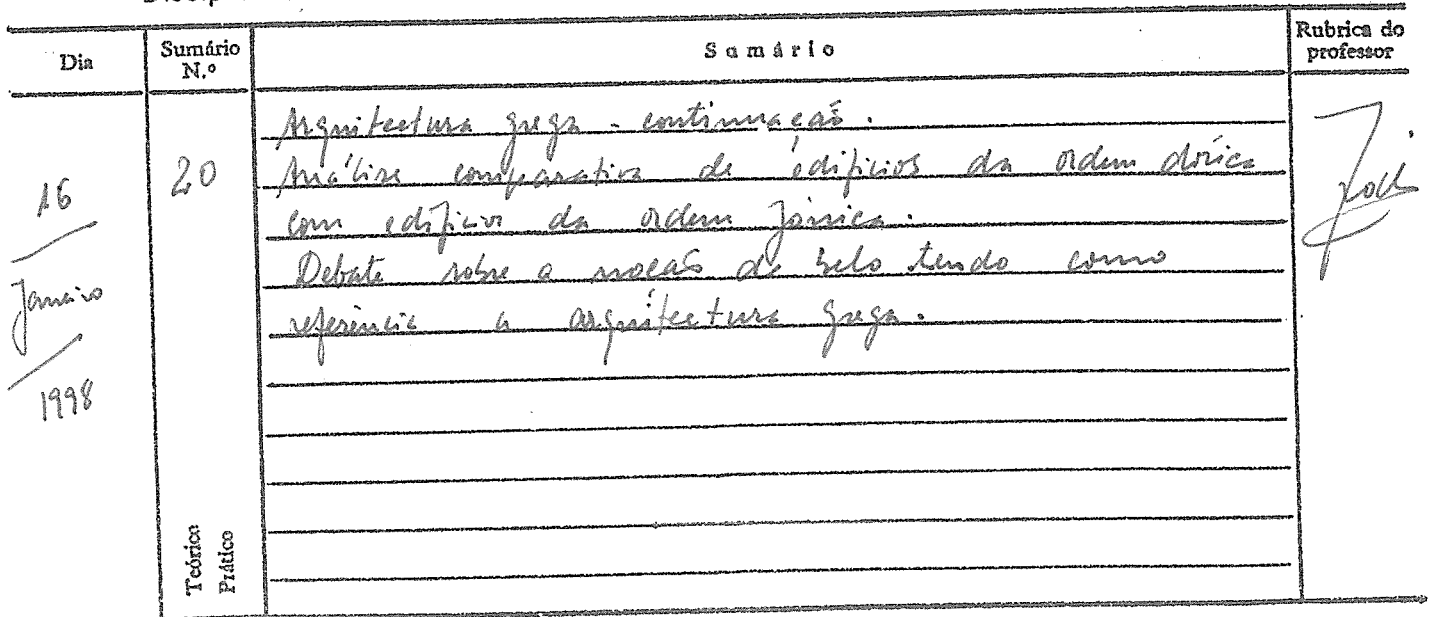 Dia
Sumário N.º
Sumário
Rubrica do professor
16
Janeiro
1998
20
Arquitectura grega - continuação.
Análise comparativa de edifícios da ordem dórica
com edifícios da ordem Jónica.
Debate sobre a noção de belo tendo como
referência a arquitectura grega.
Teórico
Prático